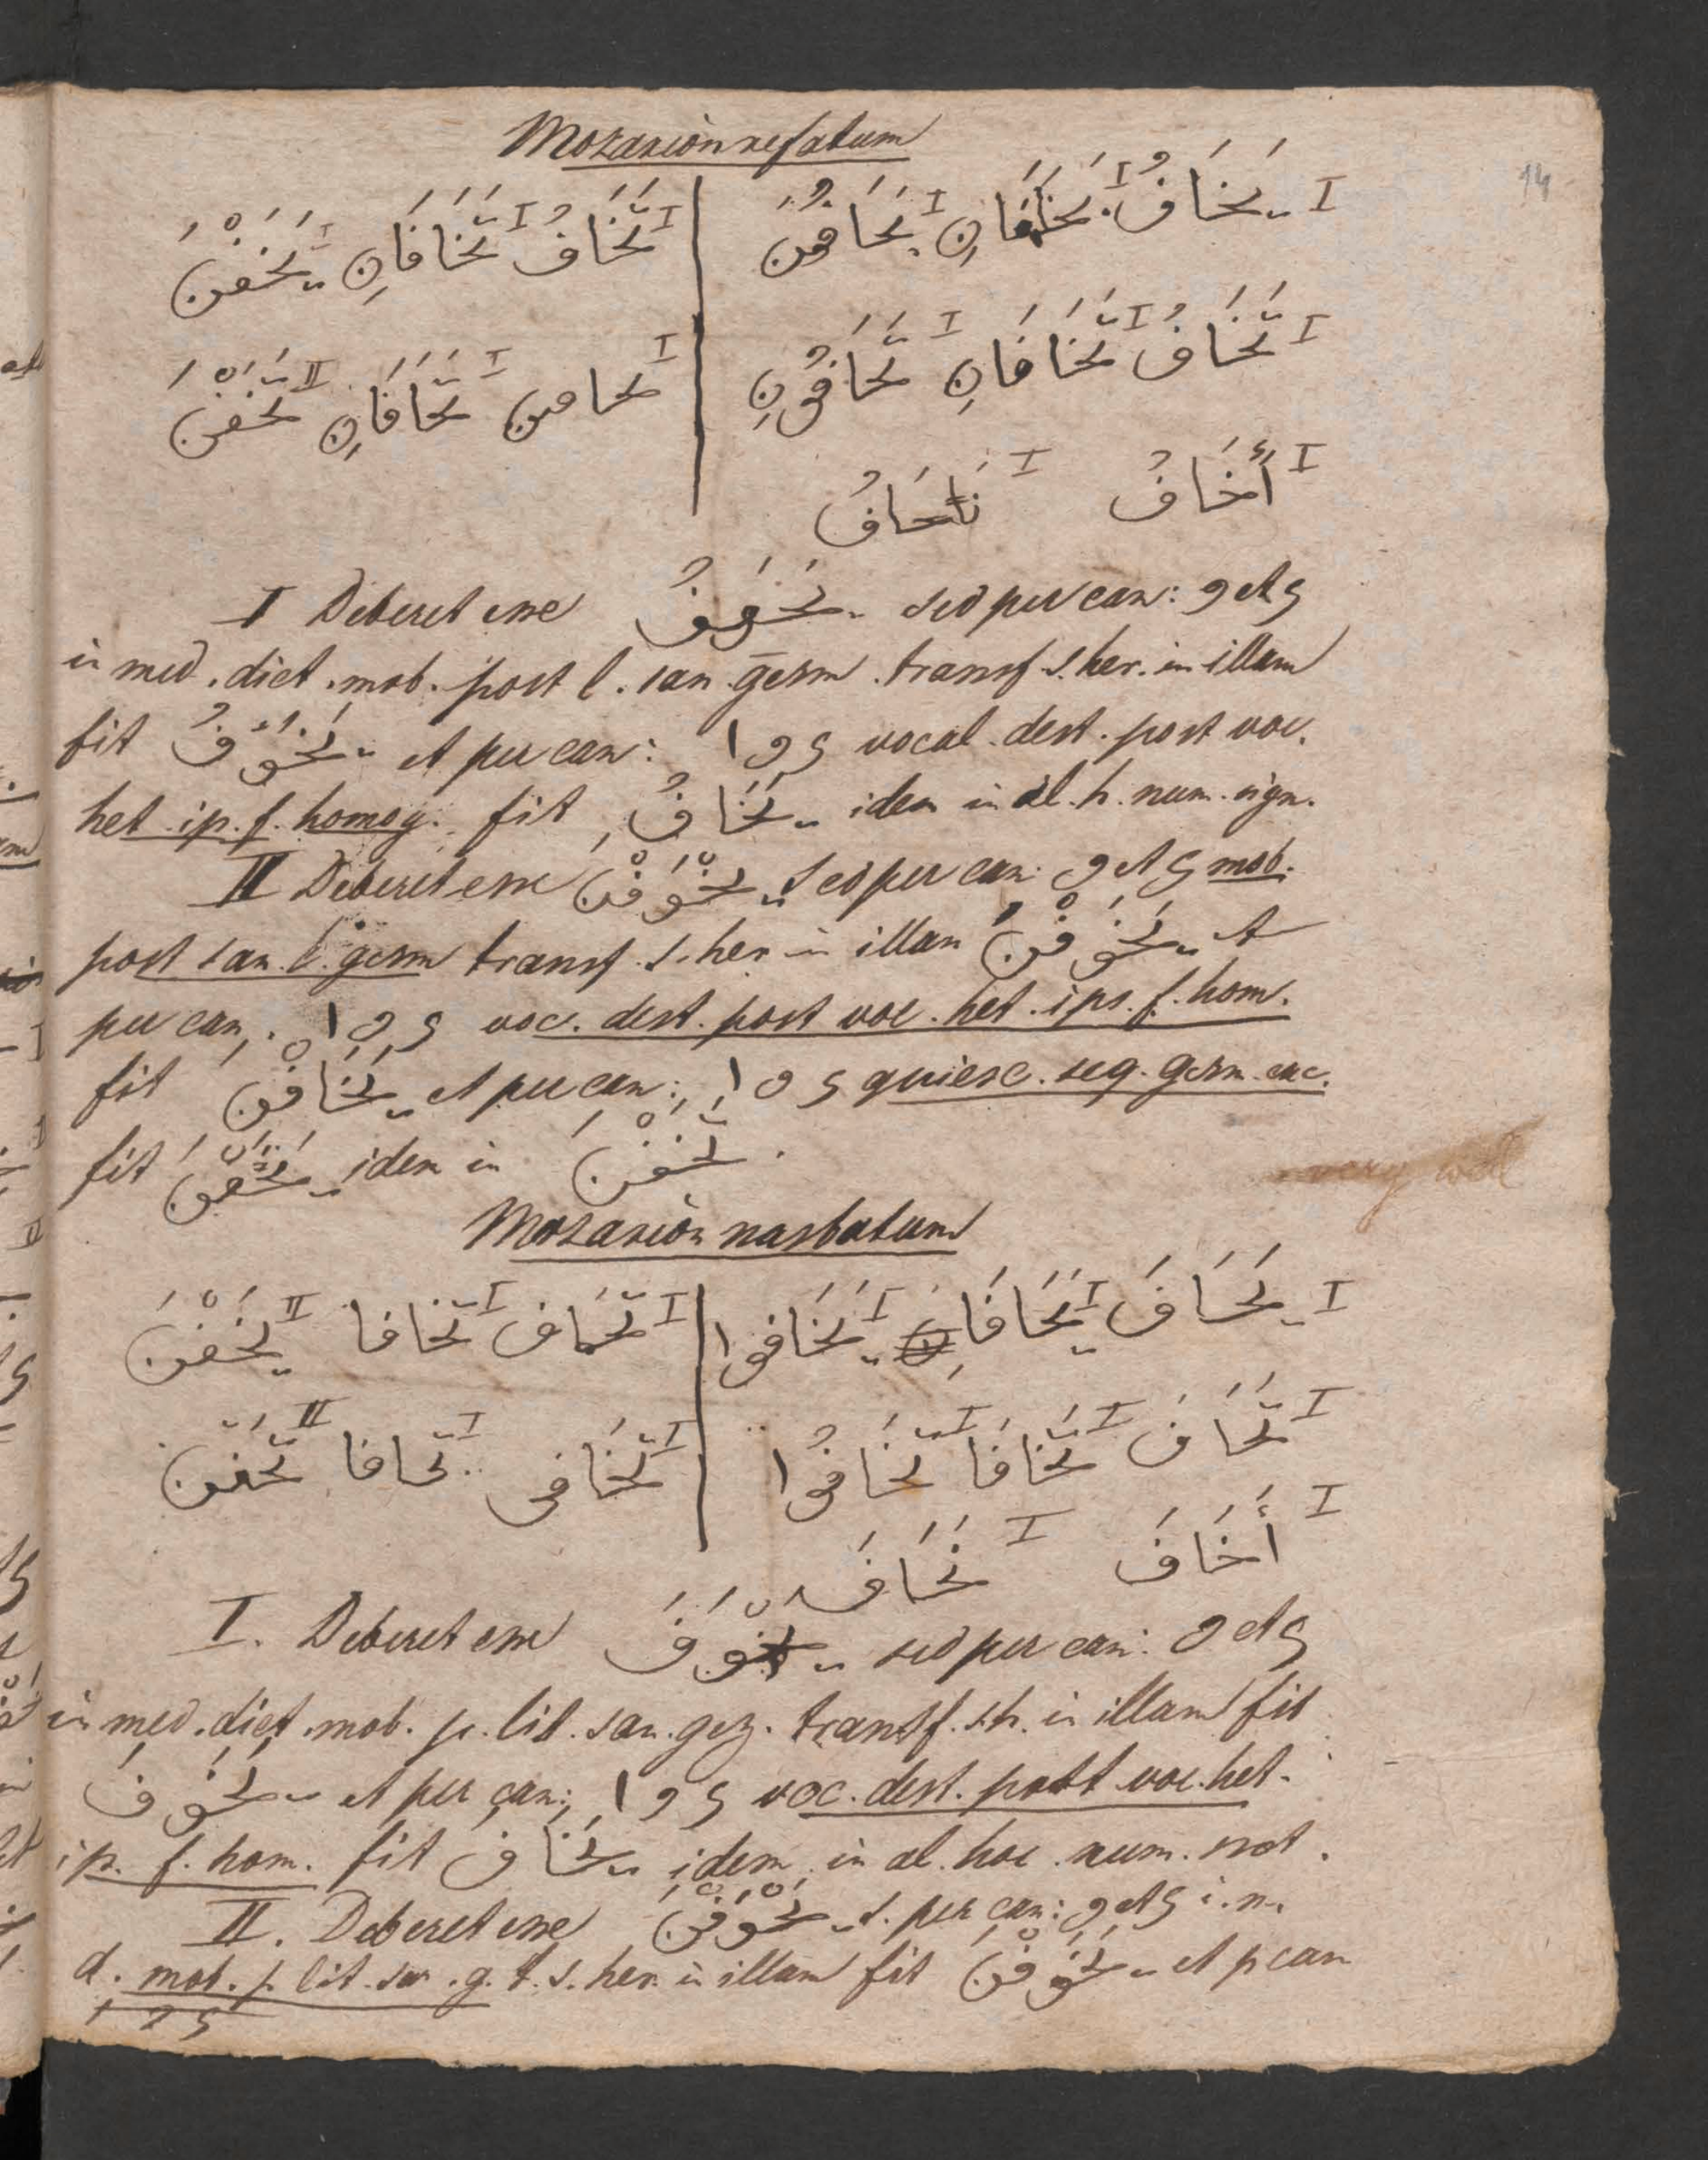 Mozarion refatum
14
I يَخَافُ I يَخَافَانِ I يَخَافُونَ | I تَخَافُ I تَخَافَانِ I يَخَفْنَ
I تَخَافُ I تَخَافَانِ I تَخَافُونِ | I تحافين I تَخَافَانِ II تَخَفْنَ
I أَخَافُ I نَخَافُ
I Deberet esse يَخْوَفُ sed per can: و et ي
in med. dict. mob. post l. san. gesm. transf. s. her. in illam
fit يَخَوْفُ et per can: ا و ي vocal. dest. post voc.
het. ip. f. homog. fit يَخَافُ idem in al. h. num. sign.
II Deberet esse يَخْوَفْنَ sed per can: و et ي mob.
post san. l. gesm transf. s. her in illam يَخَوْفْنَ et
per can. ا و ي voc. dest. post voc. het. ips. f. hom.
fit يَخَافْنَ et per can: ا و ي quiesc. seq. gesm. exc.
fit يَخَفْنَ idem in تَخَفْنَ.
very well
Mozarion nasbatum
I يَخَافَ I يَخَافَا I يَخَافوا | I تَخَاف I تَخافا II يَخَفْنَ
I تَخَافَ I تَخَافَا I تَخَافُوا | I تَخَافى I تحافا II تَخَفن
I أَخَافَ I نَخَافَ
I. Deberet esse يَخْوَفَ sed per can: و et ي
in med. dict. mob. p. lit. san. gez. transf. s. h. in illam fit
يَخَوْفَ et per can: ا و ي voc. dest. post voc. het.
ip. f. hom. fit يَخَافَ idem in al. hoc num. not.
II. Deberet esse يَخْوَفْنَ s. per can: و et ي i. m.
d. mob. p. lit. san. g. t. s. her. in illam fit يَخَوْفْنَ et p can
ا و ي